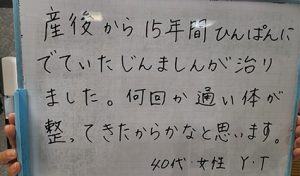 産後から15年間ひんぱんに
でていたじんましんが治り
ました。何回か通い体が
整ってきたからかなと思います。
40代・女性 Y・T